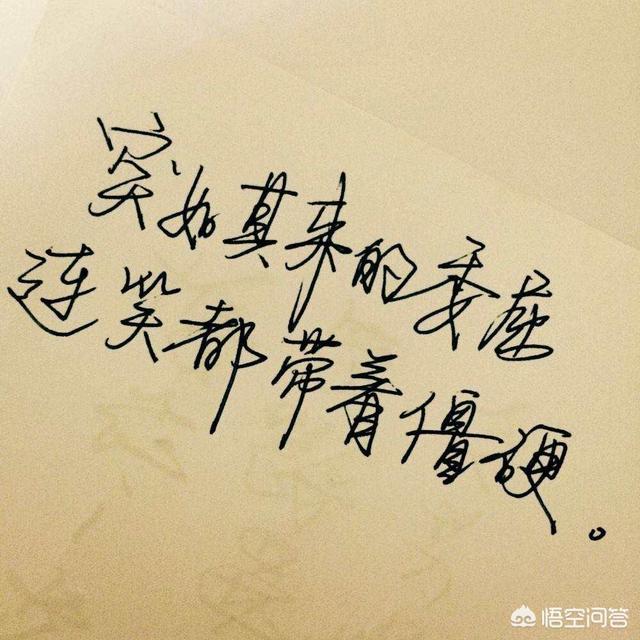 突如其来的委屈
连笑都带着僵硬。
悟空问答